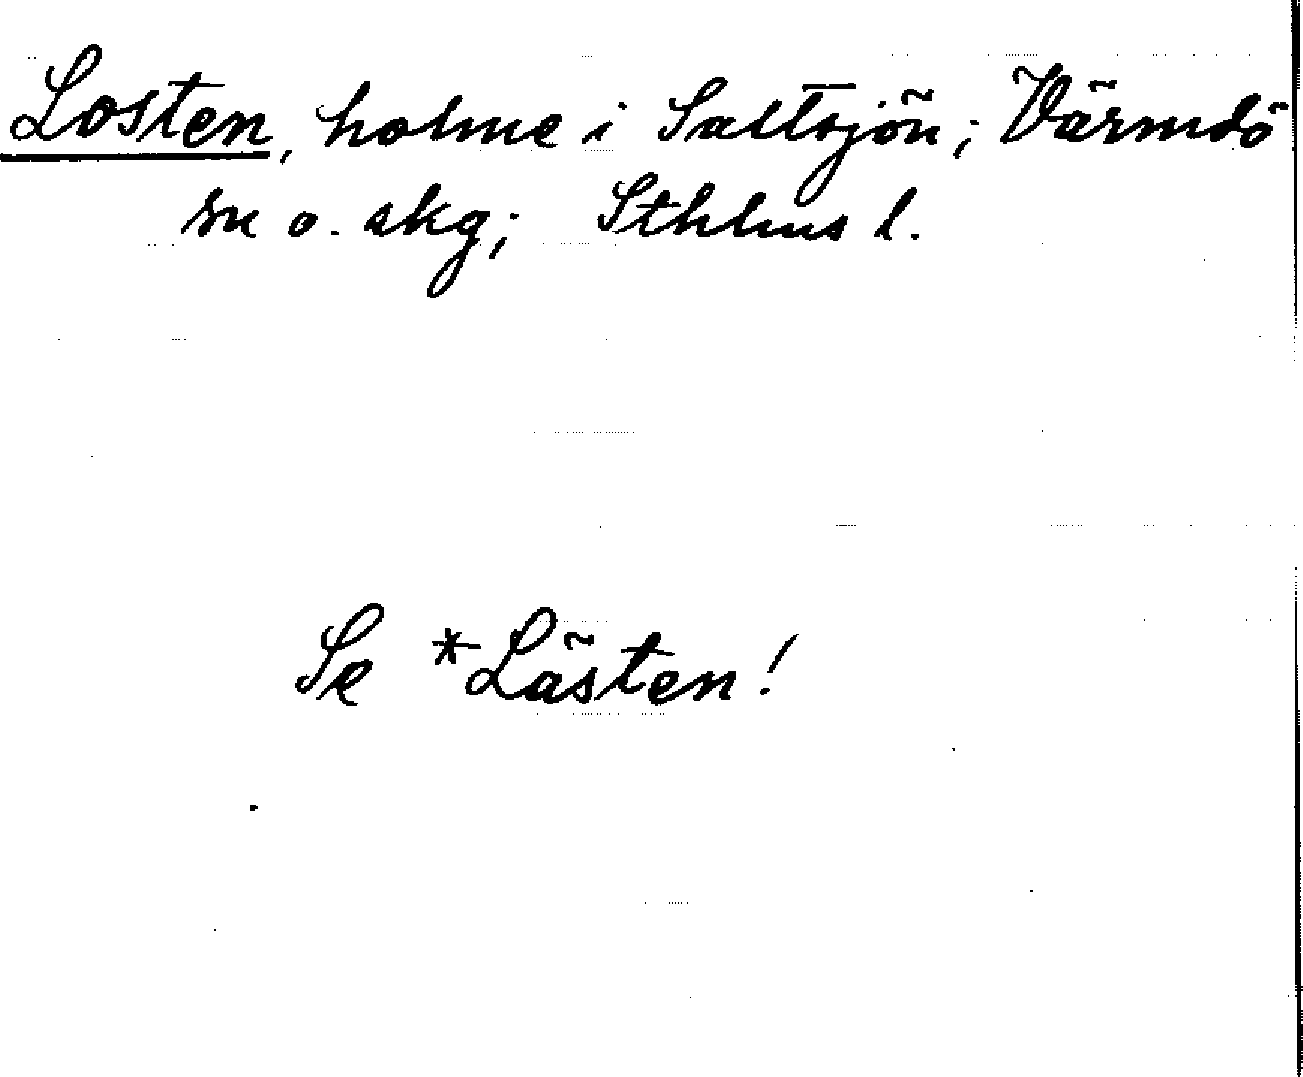 Losten, holme i Saltsjön; Värmdö
sn o. skg; Sthlms l.
Se *Lästen!